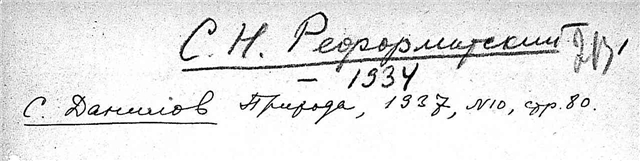 С. Н. Реформатский
– 1934
С. Данилов Природа, 1937, №10, стр. 80.